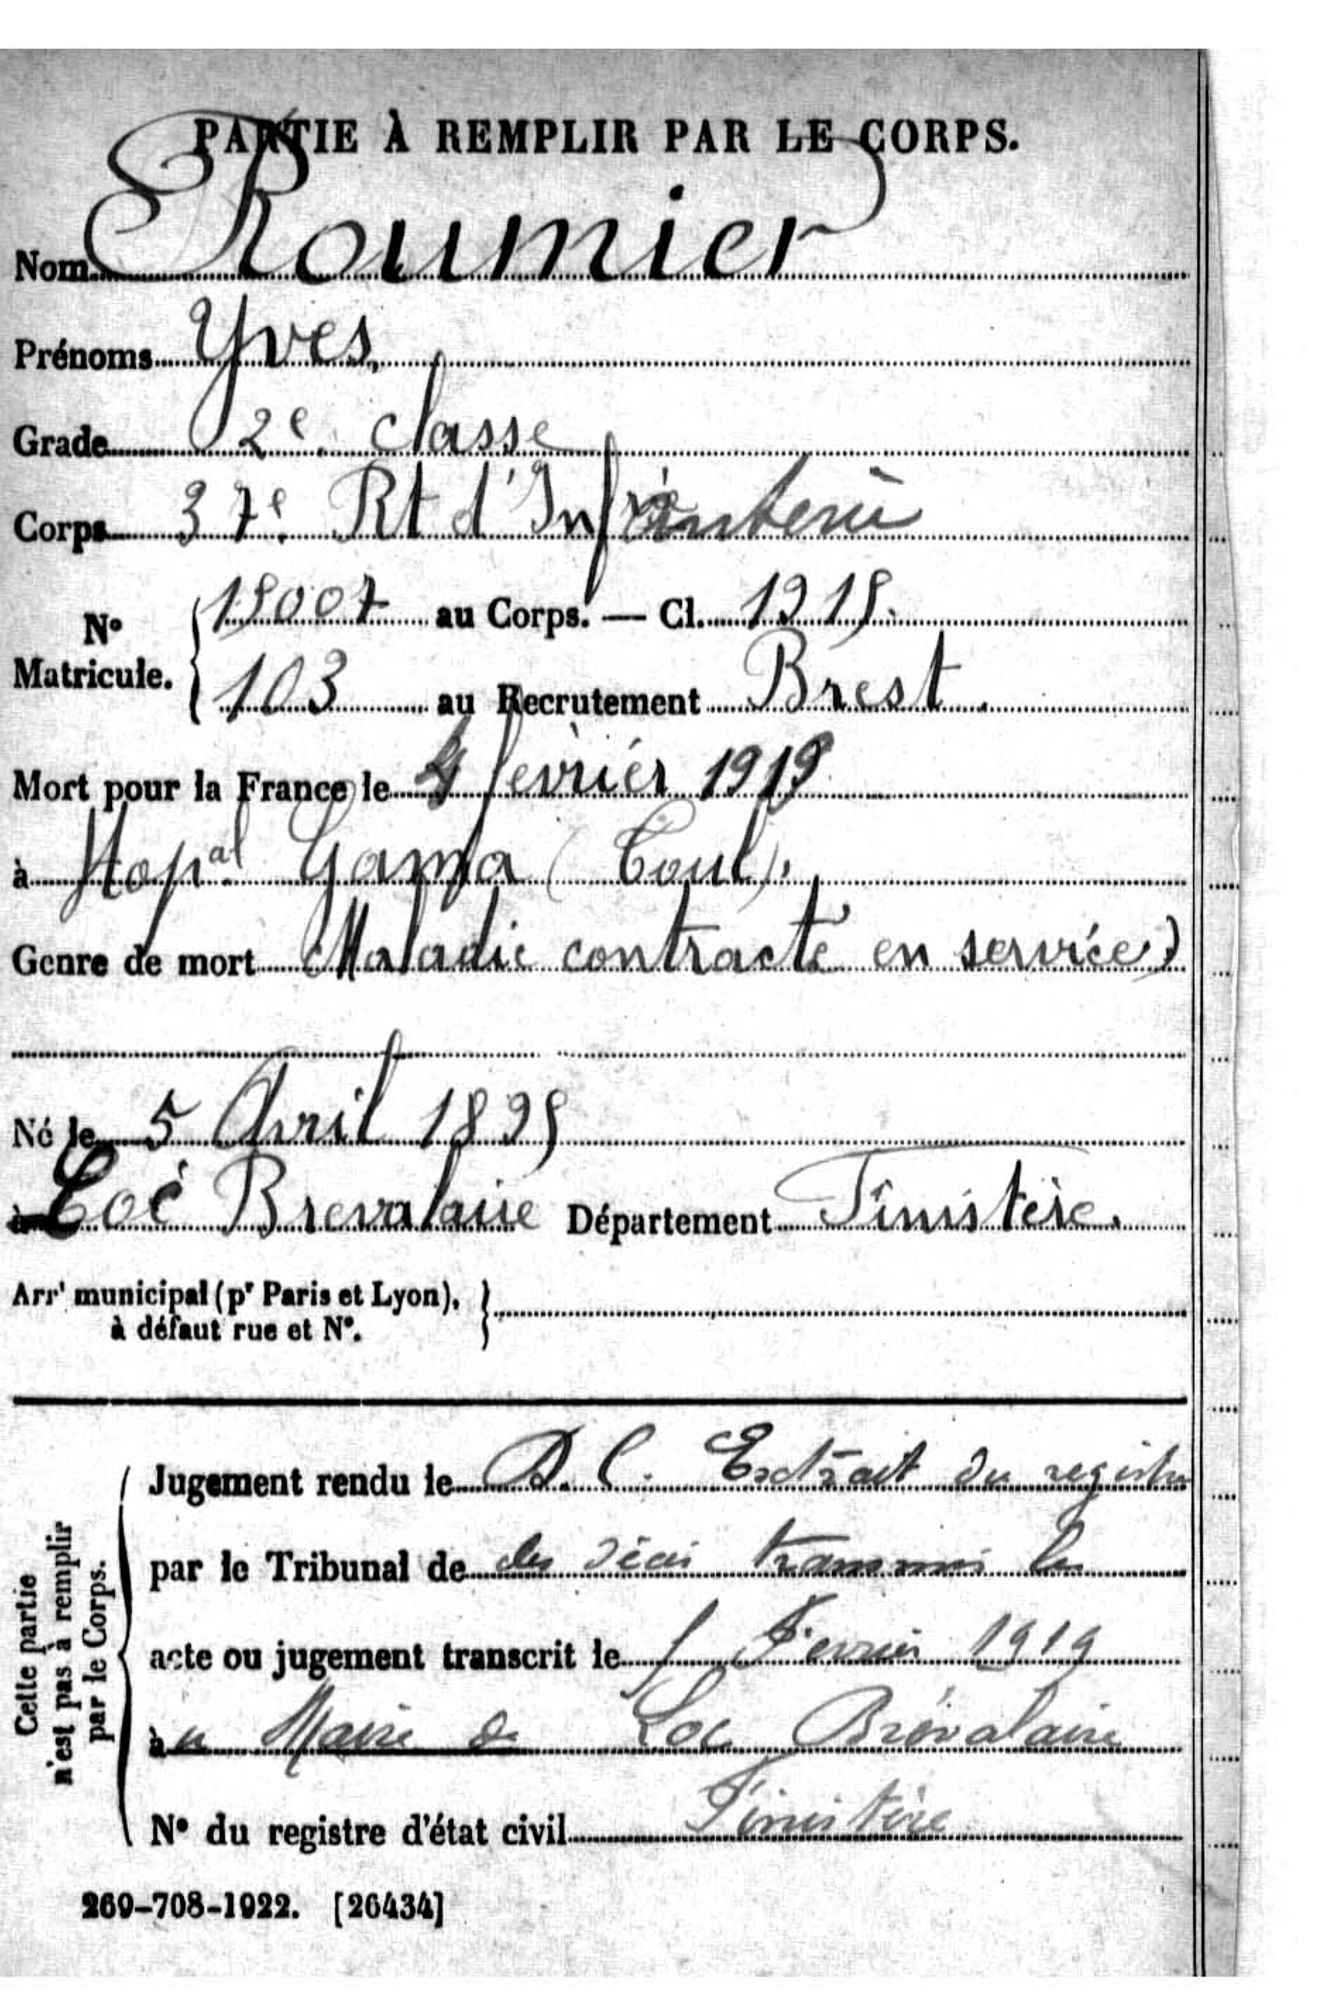 PARTIE À REMPLIR PAR LE CORPS.
Nom Roumier
Prénoms Yves
Grade 2e classe
Corps 37e Rt d'Infanterie
No Matricule. { 15007 au Corps. — Cl. 1915.
103 au Recrutement Brest.
Mort pour la France le 4 février 1919
à Hopal Gama (Toul).
Genre de mort Maladie contracté en service)
Né le 5 Avril 1895
à Loc Brevalaire Département Finistère.
Arrt municipal (pr Paris et Lyon), }
à défaut rue et No.
Cette partie
n'est pas à remplir
par le Corps.
Jugement rendu le D. C. Extrait du registre
par le Tribunal de des décès transmis le
acte ou jugement transcrit le Fevrier 1919
à u Maire de Loc Brévalaire
No du registre d'état civil Finistère
269-708-1922. [26434]